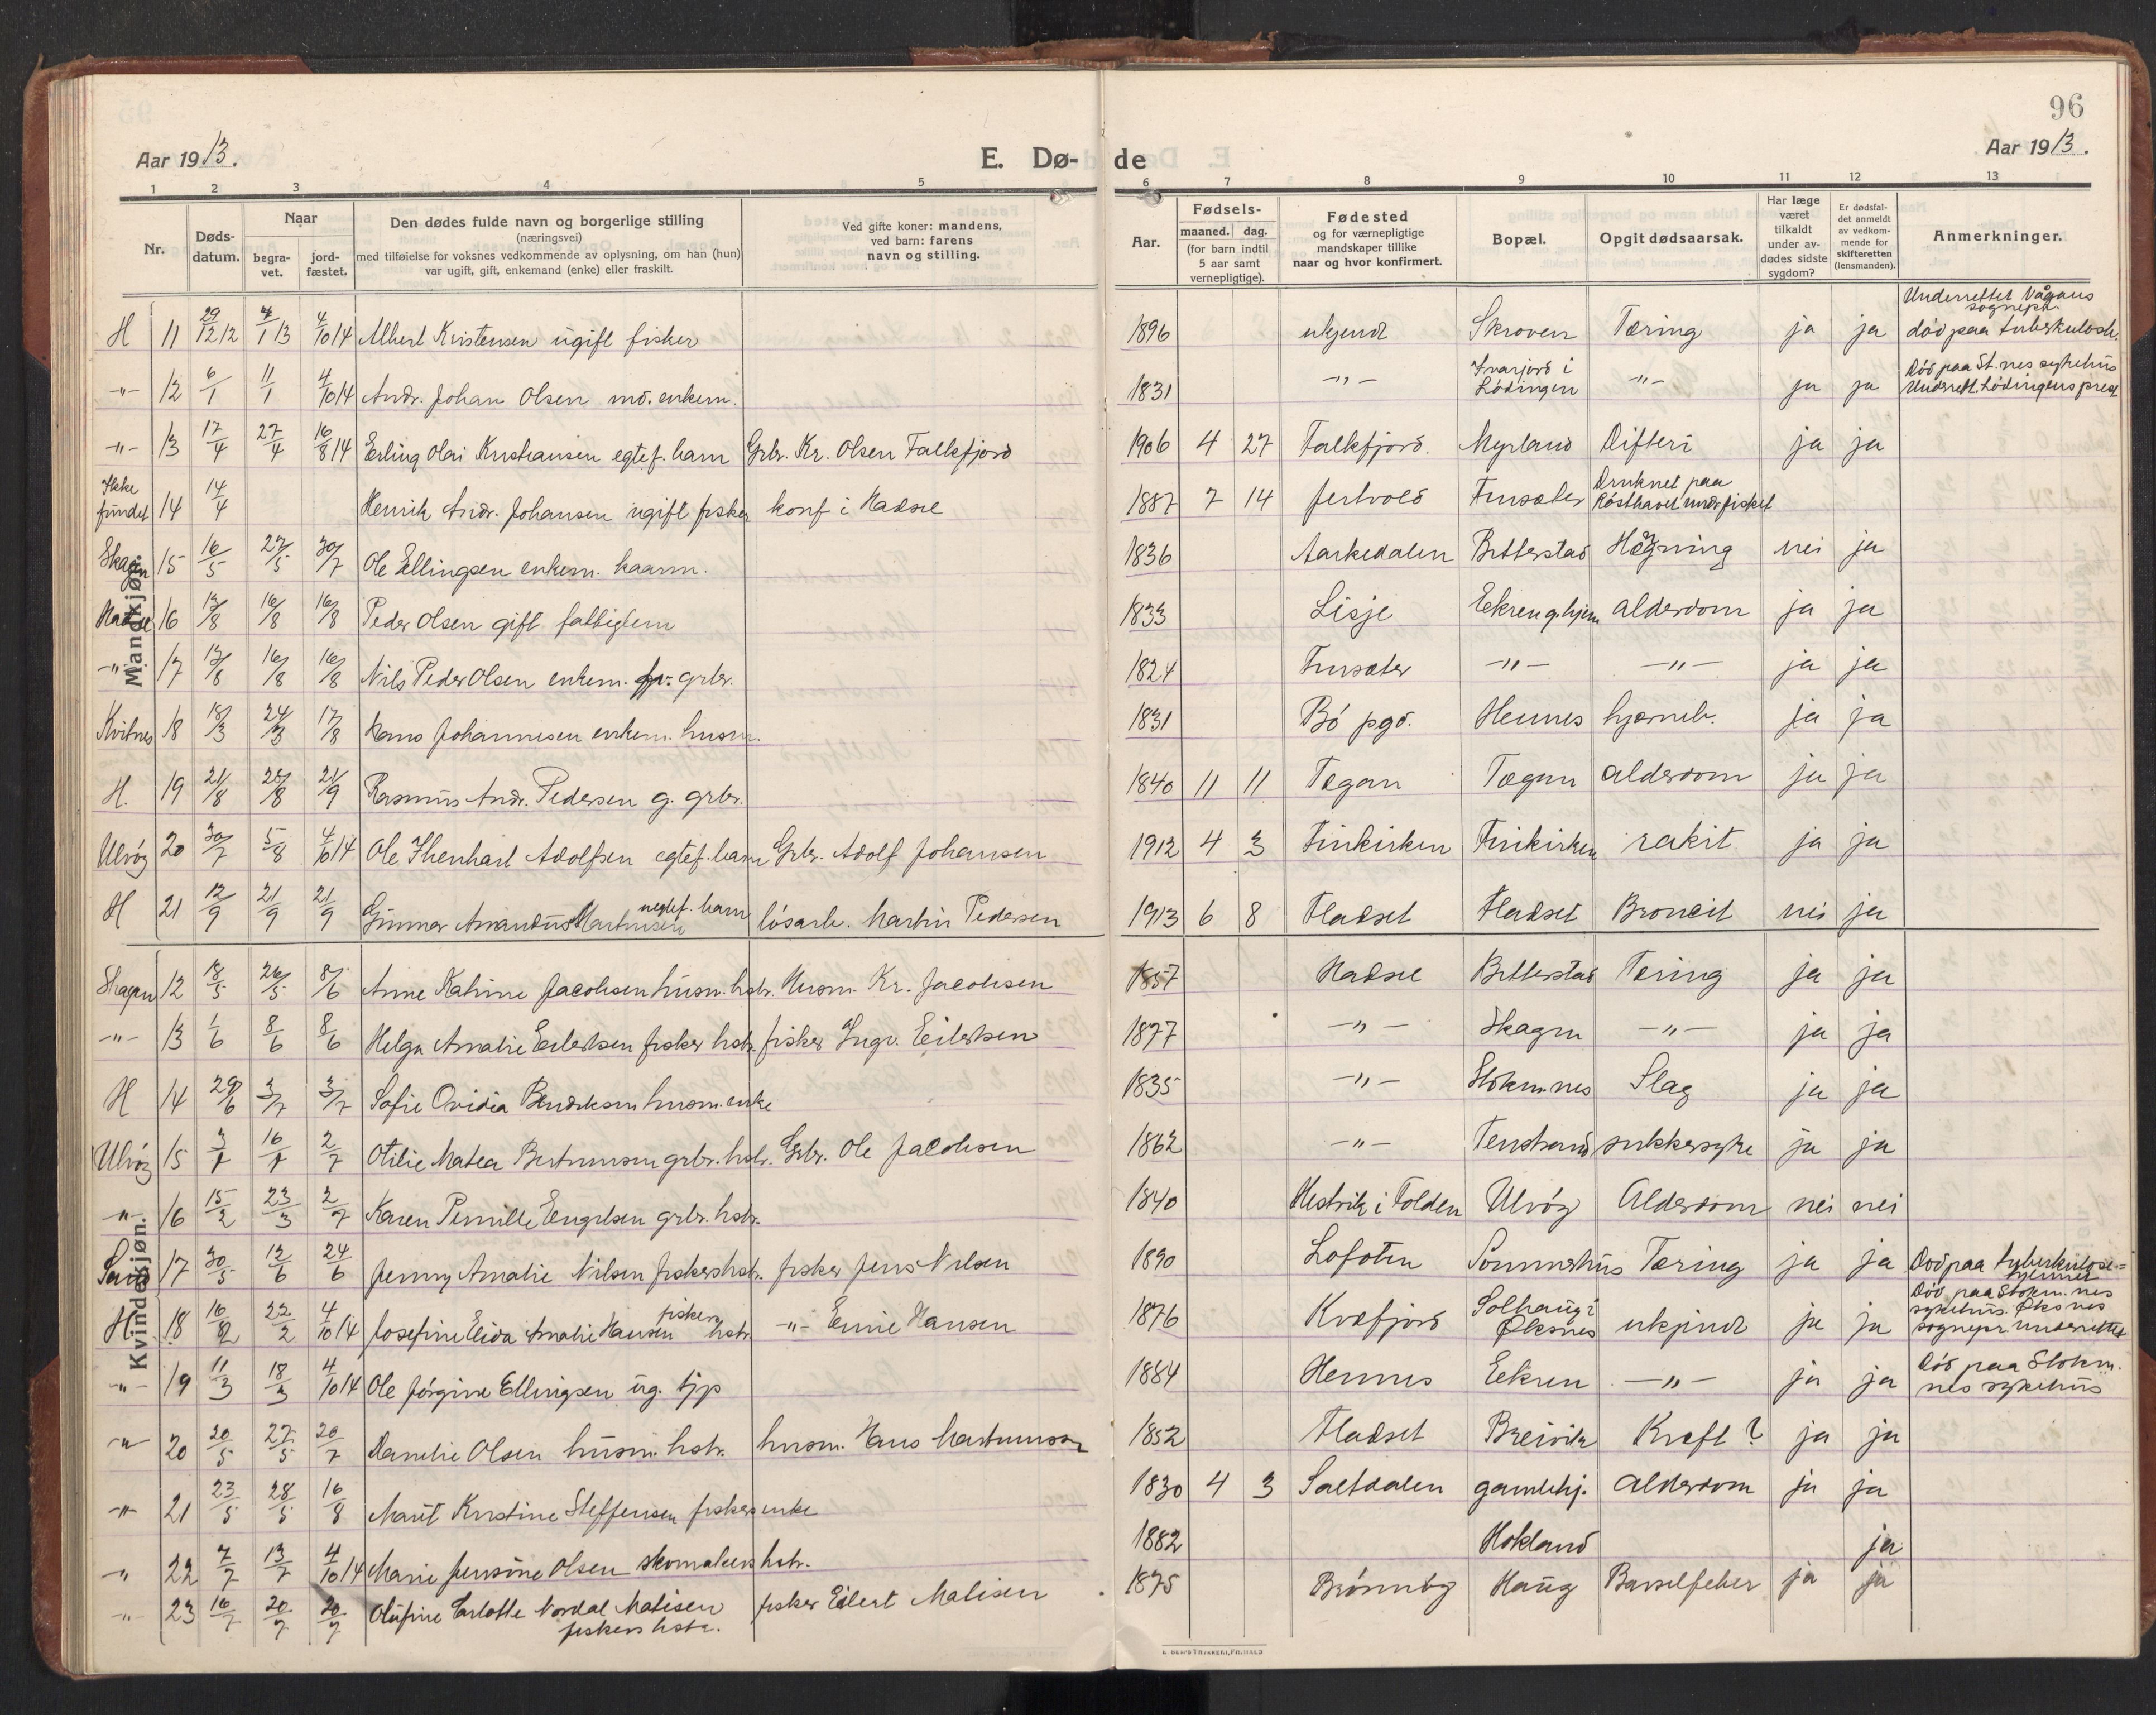 96
Aar 1913.
E. Dø-
de
Aar 1913.
1 2 3 4 5 6 7 8 9 10 11 12 13
Nr.
Døds-
datum.
Naar
begra-
vet.
jord-
fæstet.
Den dødes fulde navn og borgerlige stilling
(næringsvei)
med tilføielse for voksnes vedkommende av oplysning, om han (hun)
var ugift, gift, enkemand (enke) eller fraskilt.
Ved gifte koner: mandens,
ved barn: farens
navn og stilling.
Aar.
Fødsels-
maaned. dag.
(for barn indtil
5 aar samt
vernepligtige).
Fødested
og for værnepligtige
mandskaper tillike
naar og hvor konfirmert.
Bopæl.
Opgit dødsaarsak.
Har læge
været
tilkaldt
under av-
dødes sidste
sygdom?
Er dødsfal-
det anmeldt
av vedkom-
mende for
skifteretten
(lensmanden).
Anmerkninger.
Mandkjøn.
H 11 29/12 12 4/1 13 4/10 14 Albert Kristensen ugift fisker 1896 ukjendt Skroven Tæring ja ja Underrettet Vågans sognepr. død paa tuberkulosh.
-"- 12 6/1 11/1 4/10 14 Andr. Johan Olsen enkem. 1831 -"- Lødingen -"- ja ja Død paa St.nes sykehus Underrett. Lødingens prest
-"- 13 17/4 27/4 16/8 14 Erling Olai Kristiansen egtef. barn Grbr. Kr. Olsen Falkfjord 1906 4 27 Falkfjord. Myrland Difteri ja ja
Ikke fundet 14 14/4 Henrik Andr. Johansen ugift fisker konf i Hadsel 1887 7 14 Jertvold Frusæter Druknet paa Røsthavet under fisket
Skagen 15 16/5 27/5 30/7 Ole Ellingsen enkem. kaarm. 1836 Aarkedalen Bitterstad nei ja
Hadsel 16 13/8 16/8 16/8 Peder Olsen gift fattiglem 1833 Lisje Eekren g.hjem alderdom ja ja
-"- 17 13/8 16/8 16/8 Nils Peder Olsen enkem. grbr. 1824 Frusæter -"- -"- ja ja
Kvitnes 18 18/3 24/3 17/8 Hans Johannesen enkem. husm. 1831 Bø pgd. Hennes hjerneb. ja ja
H. 19 21/8 28/8 21/9 Rasmus Andr. Pedersen g. grbr. 1840 11 11 Tøgan Tøgan alderdom ja ja
Ulvøg 20 30/7 5/8 4/10 14 Ole Ihenhart Adolfsen egtef. barn Grbr. Adolf Johansen 1912 4 3 Finkirken Finkirken rakit ja ja
H 21 12/9 21/9 21/9 Gunnar Amandus Martinsen uegtef. barn løsarb. Martin Pedersen 1913 6 8 Fladset Fladset Broncit nei ja
Kvindekjøn.
Skagen 12 18/5 26/5 8/6 Anne Katrine Jacobsen husm. hstr. Husm. Kr. Jacobsen 1857 Hadsel Bitterstad Tæring ja ja
-"- 13 1/6 8/6 8/6 Helga Amalie Eilertsen fisker hstr. fisker Ingv. Eilertsen 1877 -"- Skagen -"- ja ja
H 14 29/6 3/7 3/7 Sofie Ovidia Bendiksen husm. enke 1835 -"- Stokm.nes Slag ja ja
Ulvøg 15 3/1 16/1 2/7 Otilie Matea Bertinusen grbr. hstr. Grbr. Ole Jacobsen 1862 -"- Tenstrand sukkersyke ja ja
-"- 16 15/2 23/3 2/7 Karen Pernille Engelsen grbr. hstr. 1840 Hestvik i Folden Ulvøg Alderdom nei nei
17 30/5 12/6 24/6 Jenny Amalie Nilsen fiskershstr. fisker Jens Nilsen 1890 Lofoten Sommerhus Tæring ja ja Død paa tuberkulosehjemmet
H 18 16/2 22/2 4/10 14 Josefine Elida Amalie Hansen fiskers hstr. -"- Enie Hansen 1876 Kvæfjord Solhaug i Øksnes ukjendt ja ja Død paa Stokm.nes sykehus. Øksnes sognepr. underrettet
-"- 19 11/3 18/3 4/10 14 Ole Jørgine Ellingsen ug. tjp 1884 Hennes Eekren -"- ja ja Død paa Stokm.nes sykehus
-"- 20 20/5 27/5 20/7 Danelie Olsen husm. hstr. husm. Hans Martinussen 1852 Fladset Breivik Kræft? ja ja
-"- 21 23/5 28/5 16/8 Marit Kristine Steffensen fiskers enke 1830 4 3 Saltdalen gamlehj. alderdom ja ja
-"- 22 7/7 13/7 4/10 14 Marie Jensine Olsen skomakers hstr. 1882 Hokland ja
-"- 23 16/7 20/7 20/7 Olufine Carlotte Nordal Matisen fiskers hstr. fisker Eilert Matisen 1875 Brønnøy Haug Barselfeber ja ja